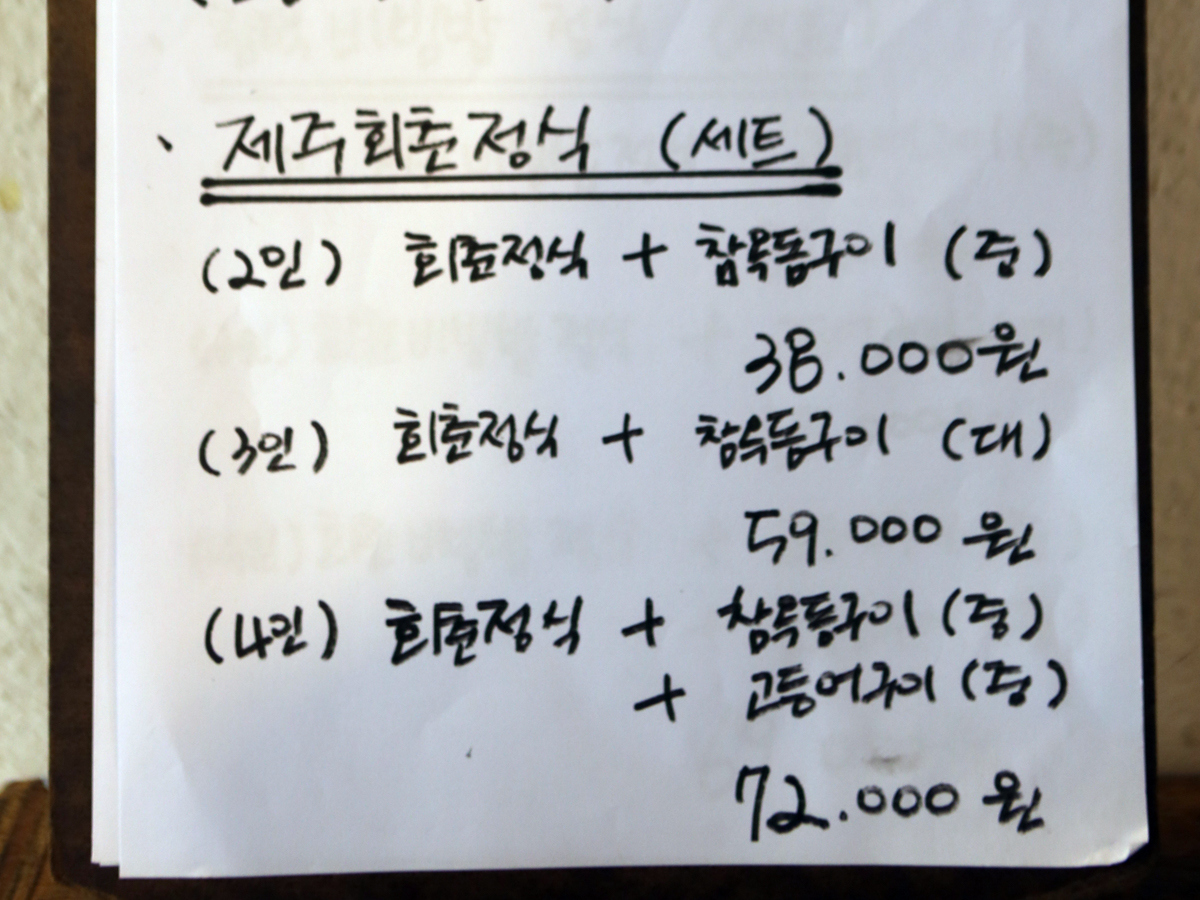 제주회춘정식 (세트)
(2인) 회춘정식 + 참옥돔구이 (중)
38.000원
(3인) 회춘정식 + 참옥돔구이 (대)
59.000원
(4인) 회춘정식 + 참옥돔구이 (중)
+ 고등어구이 (중)
72.000원